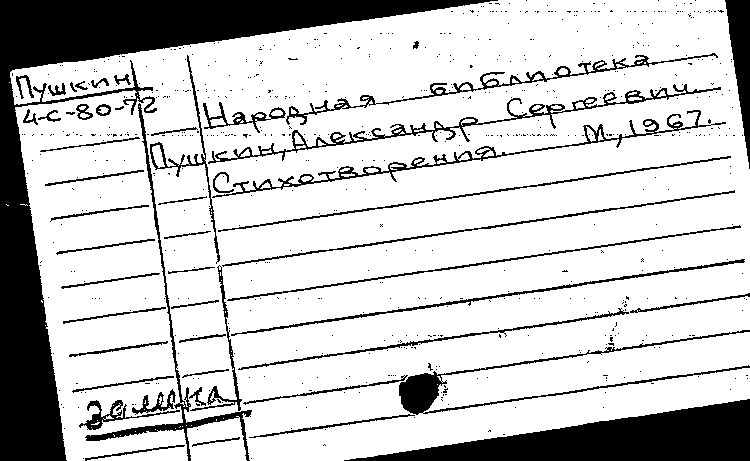 Пушкин
4-С-80-72
Народная библиотека
Пушкин, Александр Сергеевич.
Стихотворения. М., 1967.
замена